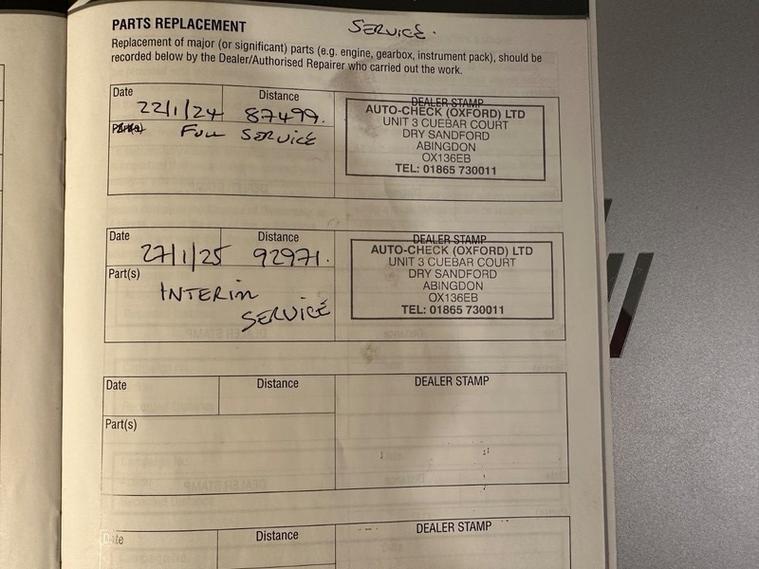 PARTS REPLACEMENT
SERVICE.
Replacement of major (or significant) parts (e.g. engine, gearbox, instrument pack), should be
recorded below by the Dealer/Authorised Repairer who carried out the work.
Date
Distance
DEALER STAMP
22/1/24
87499.
Part(s)
FULL SERVICE
AUTO-CHECK (OXFORD) LTD
UNIT 3 CUEBAR COURT
DRY SANDFORD
ABINGDON
OX136EB
TEL: 01865 730011
Date
Distance
DEALER STAMP
27/1/25
92971.
Part(s)
INTERIM
SERVICE
AUTO-CHECK (OXFORD) LTD
UNIT 3 CUEBAR COURT
DRY SANDFORD
ABINGDON
OX136EB
TEL: 01865 730011
Date
Distance
DEALER STAMP
Part(s)
Date
Distance
DEALER STAMP